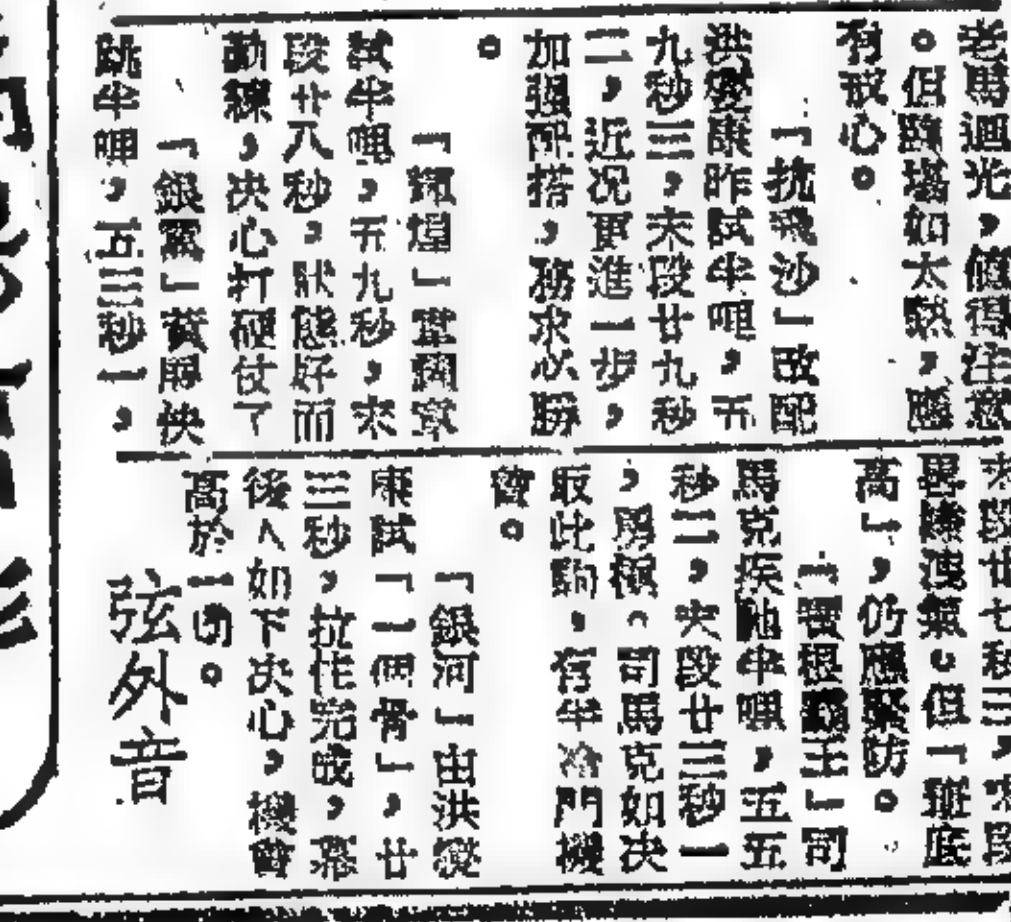 老馬迴光，值得注意
。但臨場如太熱，應
有戒心。
「抗飛沙」改配
洪燮康昨試半哩，五
九秒三，末段廿九秒
二，近况更進一步，
加强配搭，務求必勝
。
「輝煌」
試半哩，五九秒，末
段廿八秒，狀態好而
勤練，决心打硬仗了
「銀駕」黃勝快
跳半哩，五三秒一，
末段廿七秒三，末段
畧嫌洩氣。但「班底
高」，仍應緊防。
「寶根 王」司
馬克疾馳半哩，五五
秒二，尖段廿三秒一
，勇極。司馬克如决
取此駒，有半冷門機
會。
「銀河」由洪燮
康試「一個骨」，廿
三秒，拉住完成，幕
後人如下决心，機會
高於一切。
弦外音